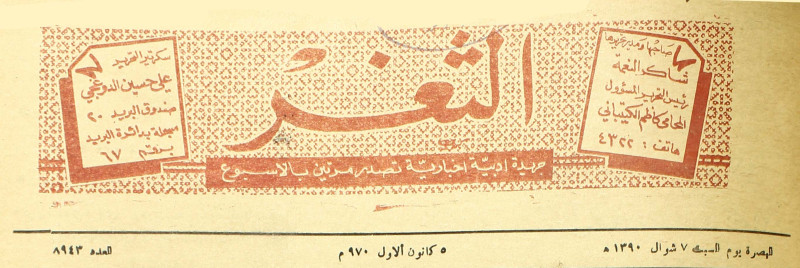 صاحبها ومدير تحريرها
شاكر النعمة
رئيس التحرير المسؤول
المحامي كاظم الكيتباني
هاتف : ٤٣٢٢
الثغر
جريدة أدبية اخبارية تصدر مرتين بالاسبوع
سكرتير التحرير
علي حسين الدوغجي
صندوق البريد ٢٠
مسجلة بدائرة البريد
برقم ٦٧
البصرة يوم السبت ٧ شوال ١٣٩٠ ه
٥ كانون الاول ٩٧٠ م
العدد ٨٩٤٣